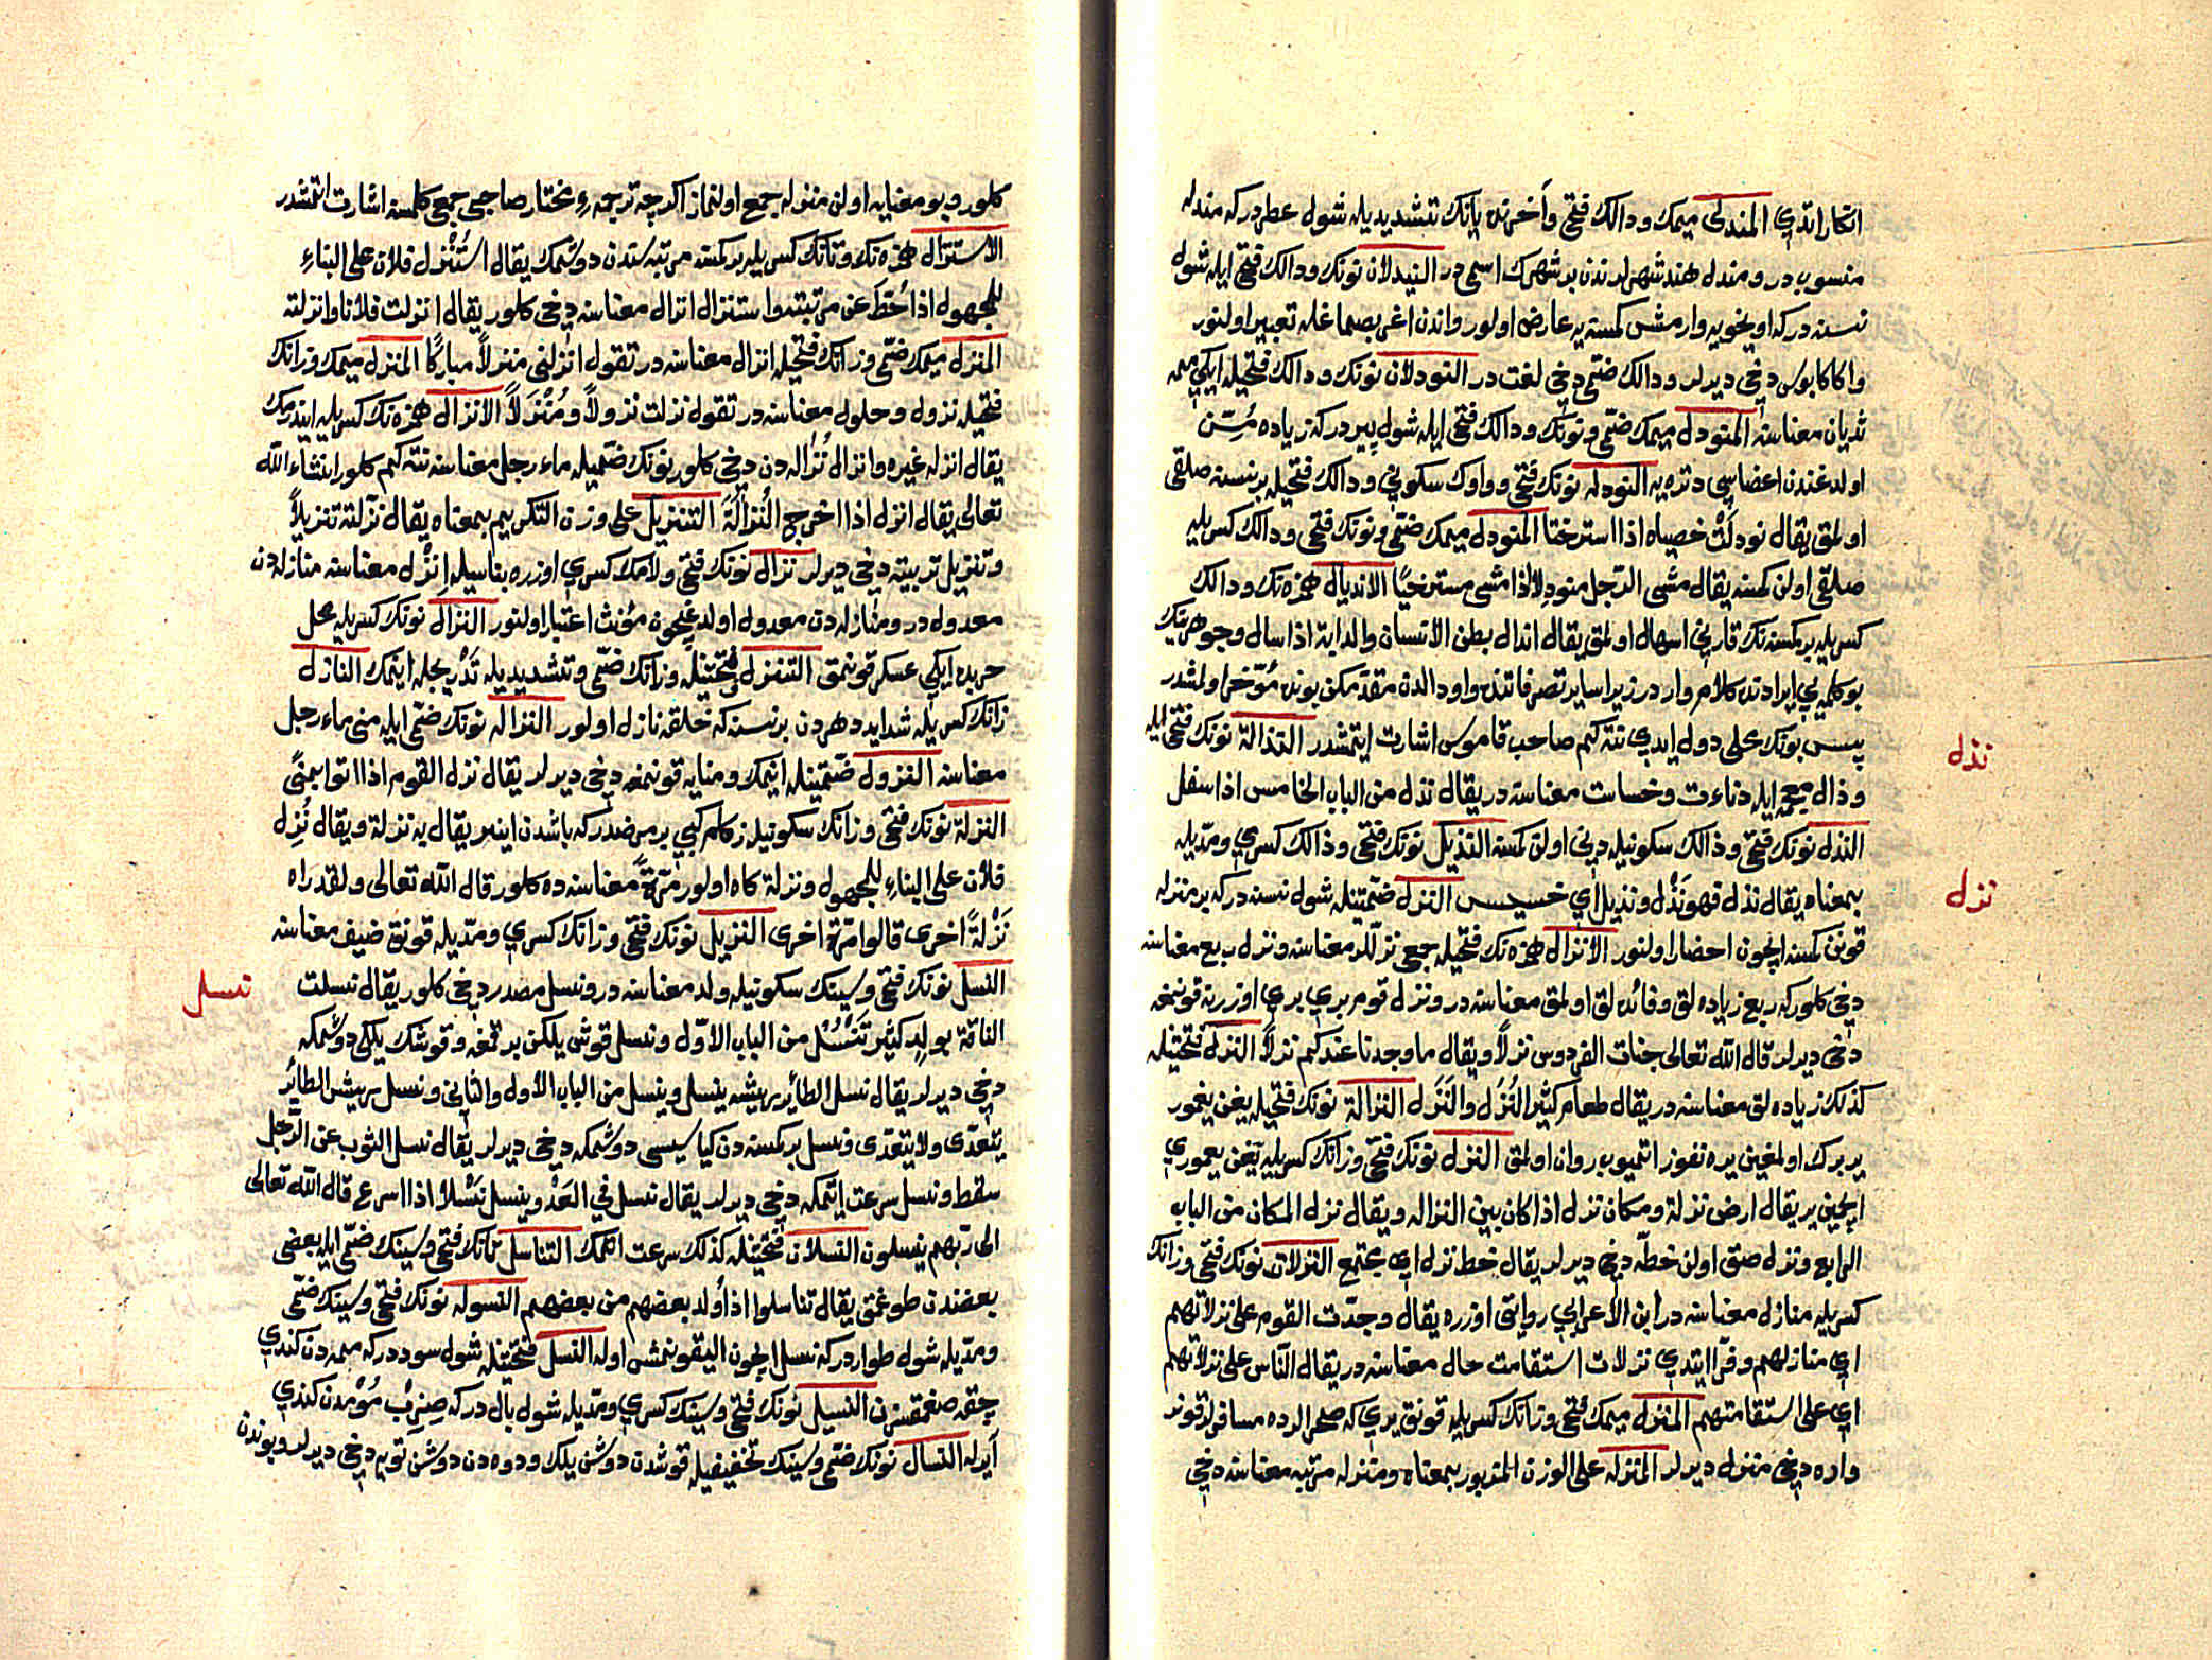 انكار اتدي المندلى ميمك ودالك فتحى وآخرنده يانك تشديديله شول عطردركه مندله
منسوب در ومندل هند شهرلرندن بر شهرك اسمى در النيدلان نونك ودالك فتحى ايله شول
نسنه دركه اويخويه وارمش كمسنه يه عارض اولور واندن اغربصماغله تعبير اولنور
واكا كابوس دخى ديرلر ودالك ضمى دخى لغت در النودلان نونك ودالك فتحيله ايكى ممه
ثديان معناسنه المنودل ميمك ضمى ونونك ودالك فتحى ايله شول پيردركه زياده مسن
اولدغندن اعضاسى دتره يه النودله نونك فتحى وواوك سكونى ودالك فتحيله برنسنه صلقى
اولمق يقال نودلت خصياه اذا استرختا المنودل ميمك ضمى ونونك فتحى ودالك كسريله
صلقى اولن كمسنه يقال مشى الرجل منودلا اذا مشى مسترخيا الانديال همزه نك ودالك
كسريله بركمسنه نك قارنى اسهال اولمق يقال اندال بطن الانسان والدابة اذا سال وجوهرينك
بو كلمه يى ايرادنده كلام وار در زيرا ساير تصرفاتنده واو دالدن مقدمكن بونده مؤخر اولمشدر
پس بونك محلى دول ايدى نته كيم صاحب قاموس اشارت ايتمشدر النذالة نونك فتحى ايله
وذال معجمه ايله دناءت وخساست معناسنه در يقال نذل من الباب الخامس اذا سفل
النذل نونك فتحى وذالك سكونيله دنى اولن كمسنه النذيل نونك فتحى وذالك كسرى ومدّيله
بمعناه يقال نذل فهو نذل ونذيل اى خسيس النزل ضمتينله شول نسنه دركه بر منزله
قونن كمسنه ايچون احضار اولنور الانزال همزه نك فتحيله جمعى نزللر معناسنه ونزل ريع معناسنه
دخى كلوركه ريع زياده لق وفائده لق اولمق معناسنه در ونزل قوم برى برى اوزرينه قونمغه
دخى ديرلر قال الله تعالى جنات الفردوس نزلا ويقال ما وجدنا عندكم نزلا النزل فتحتينله
كذلك زياده لق معناسنه در يقال طعام كثير النزل والنزل النزالة نونك فتحيله يغن يغمور
ير برك اولمغين يره نفوذ اتميوب روان اولمق النزل نونك فتحى وزانك كسريله يغن يغمورى
ايچين ير يقال ارض نزلة ومكان نزل اذا كان بين النزالة ويقال نزل المكان من الباب
الرابع ونزل صق اولن خطه دخى ديرلر يقال خط نزل اى مجتمع النزلات نونك فتحى وزانك
كسريله منازل معناسنه در ابن الاعرابى روايتى اوزره يقال وجدت القوم على نزلاتهم
اى منازلهم وفرا ايتدى نزلات استقامت حال معناسنه در يقال الناس على نزلاتهم
اى على استقامتهم المنزل ميمك فتحى وزانك كسريله قونق يرى كه صحرالرده مسافرلر قونر
واره دخى منزل ديرلر المنزله على الوزن المزبور بمعناه ومنزله مرتبه معناسنه دخى
نذل
نزل
كلور وبو معنايه اولن منزله جمع اولنماز اكرچه ترجمهء مختار صاحبى جمعى كلمسنه اشارت اتمشدر
الاستنزال همزه نك وتانك كسريله بر كمسنه مرتبه سندن دوشمك يقال استنزل فلان على البناء
للمجهول اذا حط عن مرتبته واستنزال انزال معناسنه دخى كلور يقال انزلت فلانا وانزلته
المنزل ميمك ضمى وزانك فتحيله انزال معناسنه در تقول انزلنى منزلا مباركا المنزل ميمك وزانك
فتحيله نزول وحلول معناسنه در تقول نزلت نزولا ومنزلا الانزال همزه نك كسريله ايندرمك
يقال انزله غيره وانزال نزاله دن دخى كلور نونك ضميله ماء رجل معناسنه نته كيم كلور انشاء الله
تعالى يقال انزل اذا اخرج النزالة التنزيل على وزن التكريم بمعناه يقال نزلته تنزيلا
وتنزيل ترتيبه دخى ديرلر نزال نونك فتحى ولامك كسرى اوزره بناسيله انزل معناسنه منازله دن
معدول در ومنازله دن معدول اولدغيچون مؤنث اعتبار اولنور النزال نونك كسريله محل
حربده ايكى عسكر قونمق التنزل فتحتينله وزانك ضمى وتشديديله تدريجله اينمك النازل
زانك كسريله شدايد دهردن بر نسنه كه خلقه نازل اولور النزاله نونك ضمى ايله منى ماء رجل
معناسنه النزول ضمتينله اينمك ومنايه قونمغه دخى ديرلر يقال نزل القوم اذا اتوا بمنى
النزلة نونك فتحى وزانك سكونيله زكام كبى بر مرضدركه باشدن اينر يقال به نزلة ويقال نزل
فلان على البناء للمجهول ونزلة كاه اولور مرّة معناسنه ده كلور قال الله تعالى ولقد راه
نزلة اخرى قالوا مرة اخرى النزيل نونك فتحى وزانك كسرى ومدّيله قونق ضيف معناسنه
النسل نونك فتحى وسينك سكونيله ولد معناسنه در ونسل مصدر دخى كلور يقال نسلت
الناقة بولد كثير تنسل من الباب الاول ونسل قوش يلكن برقمغه وقوشك يلكى دوشمكه
دخى ديرلر يقال نسل الطائر ريشه ينسل وينسل من الباب الأول والثانى ونسل ريش الطائر
يتعدى ولا يتعدى ونسل بر كمسنه دن كياسيسى دوشمكه دخى ديرلر يقال نسل الثوب عن الرجل
سقط ونسل سرعت ايتمكه دخى ديرلر يقال نسل فى العدو ينسل نسلا اذا اسرع قال الله تعالى
الى ربهم ينسلون النسلان فتحتينله كذلك سرعت اتمك التناسل تانك فتحى وسينك ضمى ايله بعضى
بعضندن طوغمق يقال تناسلوا اذا ولد بعضهم من بعضهم النسوله نونك فتحى وسينك ضمى
ومدّيله شول طواردركه نسل ايچون اليقونمش اوله النسل فتحتينله شول سوددركه ممه دن كندى
چقه صغمقسزن النسيل نونك فتحى وسينك كسرى ومدّيله شول بال دركه مومدن كندى
آيرله النسال نونك ضمى وسينك تخفيفيله قوشدن دوشن يلك ودوه دن دوشن تويه دخى ديرلر وبوندن
نسل